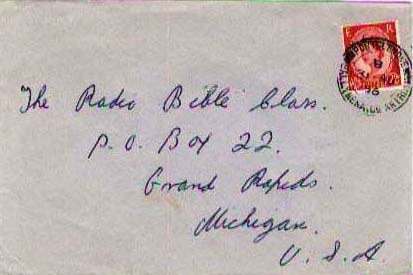 E R
The Radio Bible Class.
P. O. Box 22.
Grand Rapids.
Michigan.
U. S. A.